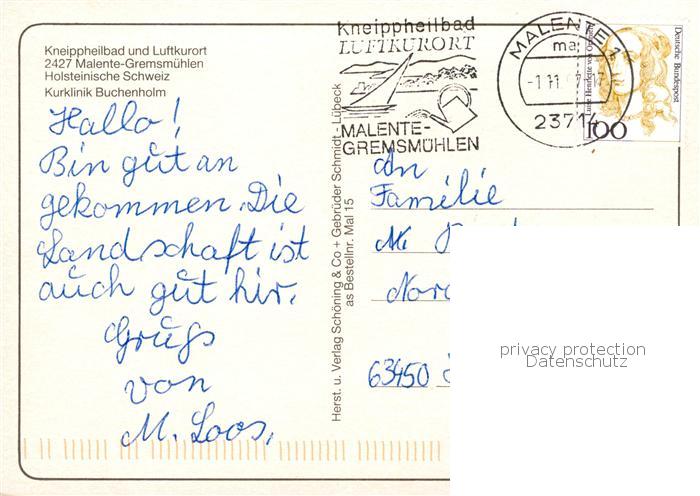 Kneippheilbad und Luftkurort
2427 Malente-Gremsmühlen
Holsteinische Schweiz
Kurklinik Buchenholm
Hallo!
Bin gut an
gekommen. Die
Landschaft ist
auch gut hir.
Gruß
von
M. Loos,
Herst. u. Verlag Schöning & Co + Gebrüder Schmidt - Lübeck
as Bestellnr. Mal 15
Kneippheilbad
LUFTKURORT
MALENTE-
GREMSMÜHLEN
MALENTE 1
ma
-1 11
23714
100
Deutsche Bundespost
An
Familie
M.
63450
privacy protection
Datenschutz